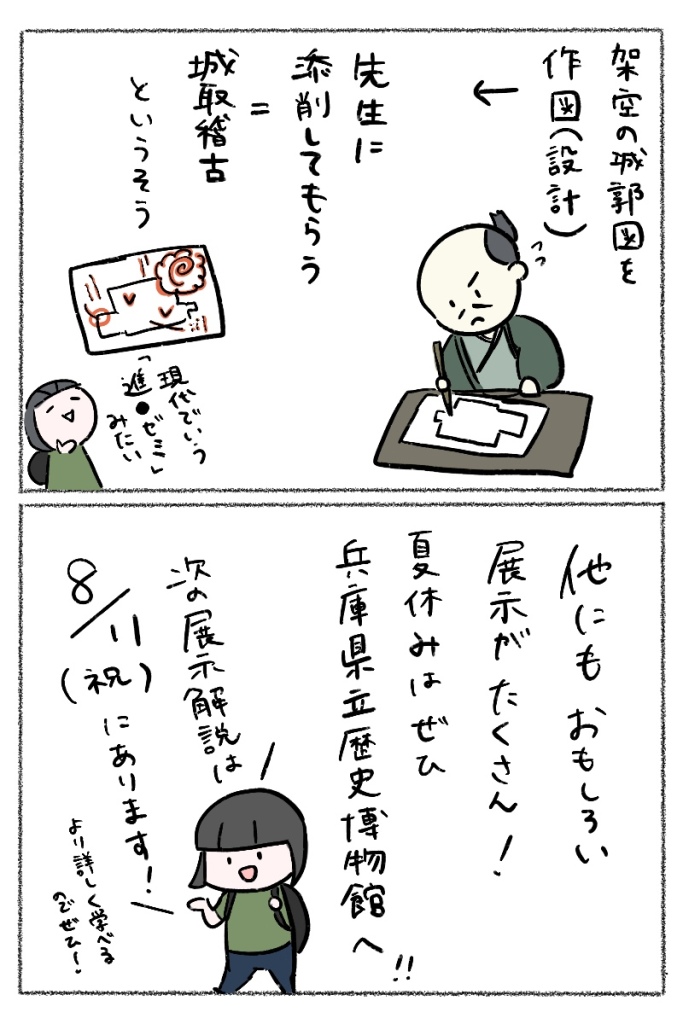 架空の城郭図を
作図(設計)
←
先生に
添削してもらう
=
城取稽古
というそう
現代でいう
「進●ゼミ」
みたい
他にもおもしろい
展示がたくさん!
夏休みはぜひ
兵庫県立歴史博物館へ!!
次の展示解説は
8/11
(祝)
にあります!
より詳しく学べる
のでぜひ!